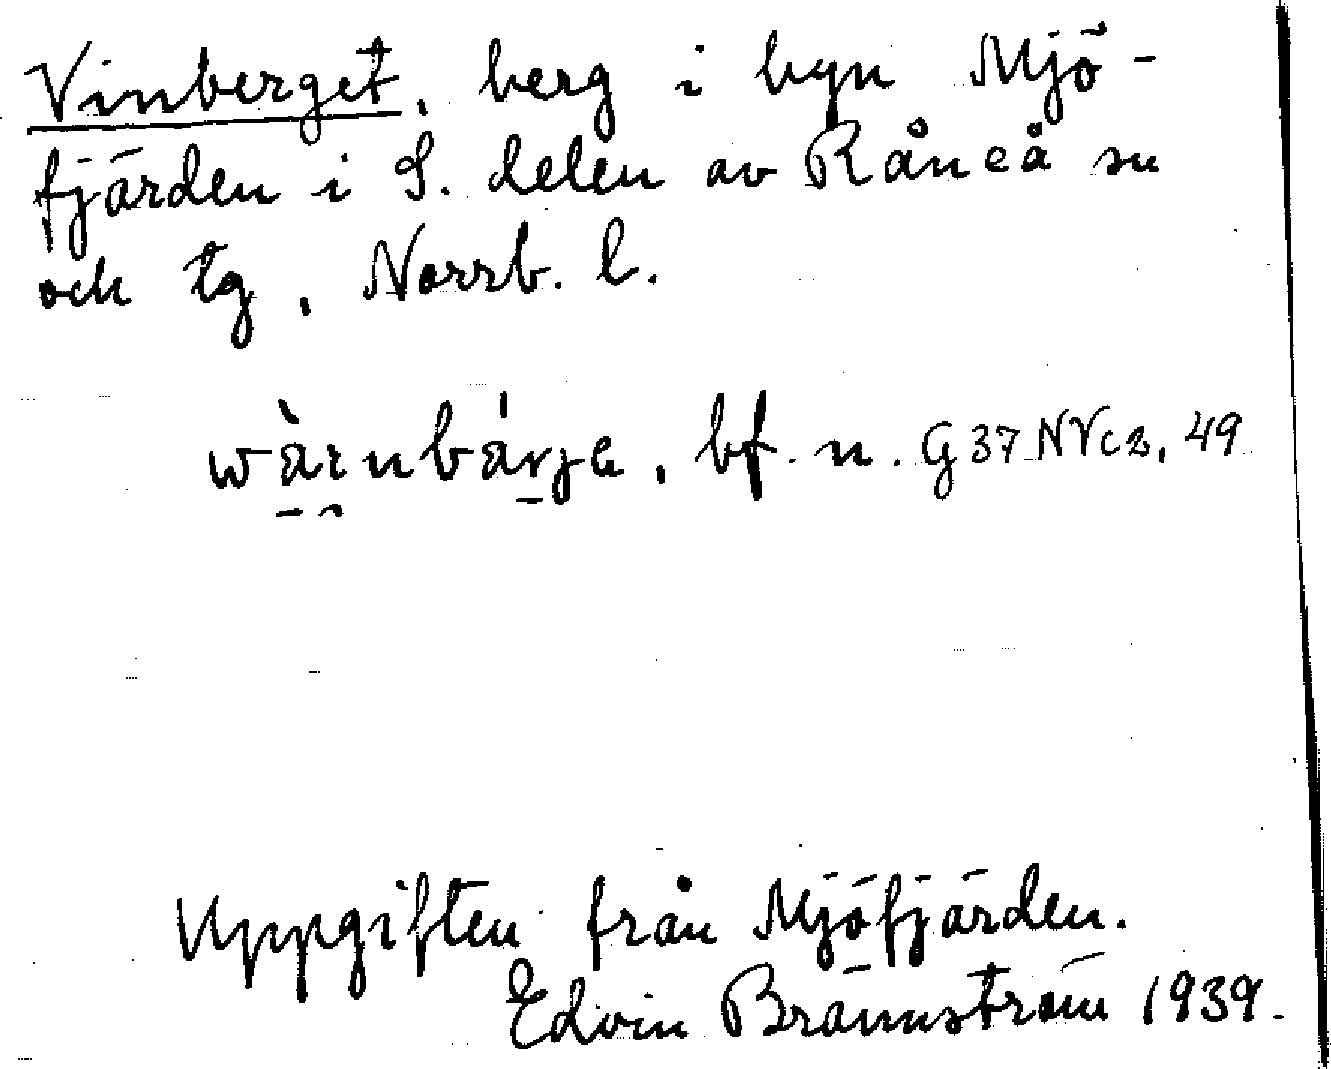 Vinberget, berg i byn Mjö-
fjärden i S. delen av Råneå sn
och tg, Norrb. l.
wàrnbárje, bf. n. G37NVc2, 49
Uppgiften från Mjöfjärden.
Edvin Brännström 1939.